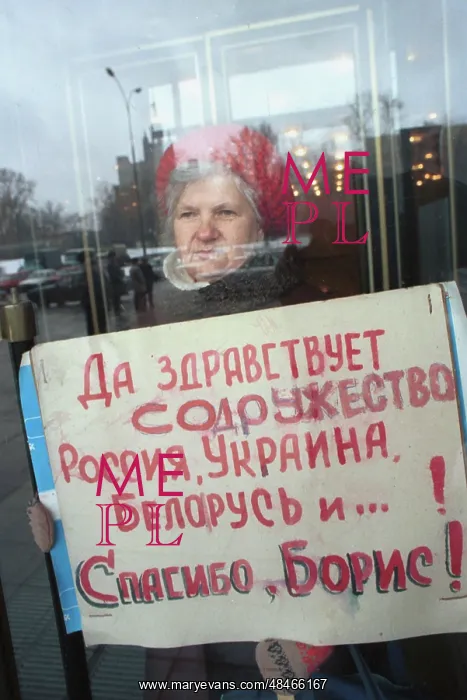 ME
PL
Да здравствует
содружество
Россия, Украина,
ME
Беларусь и... !
PL
Спасибо, Борис!
www.maryevans.com/48466167